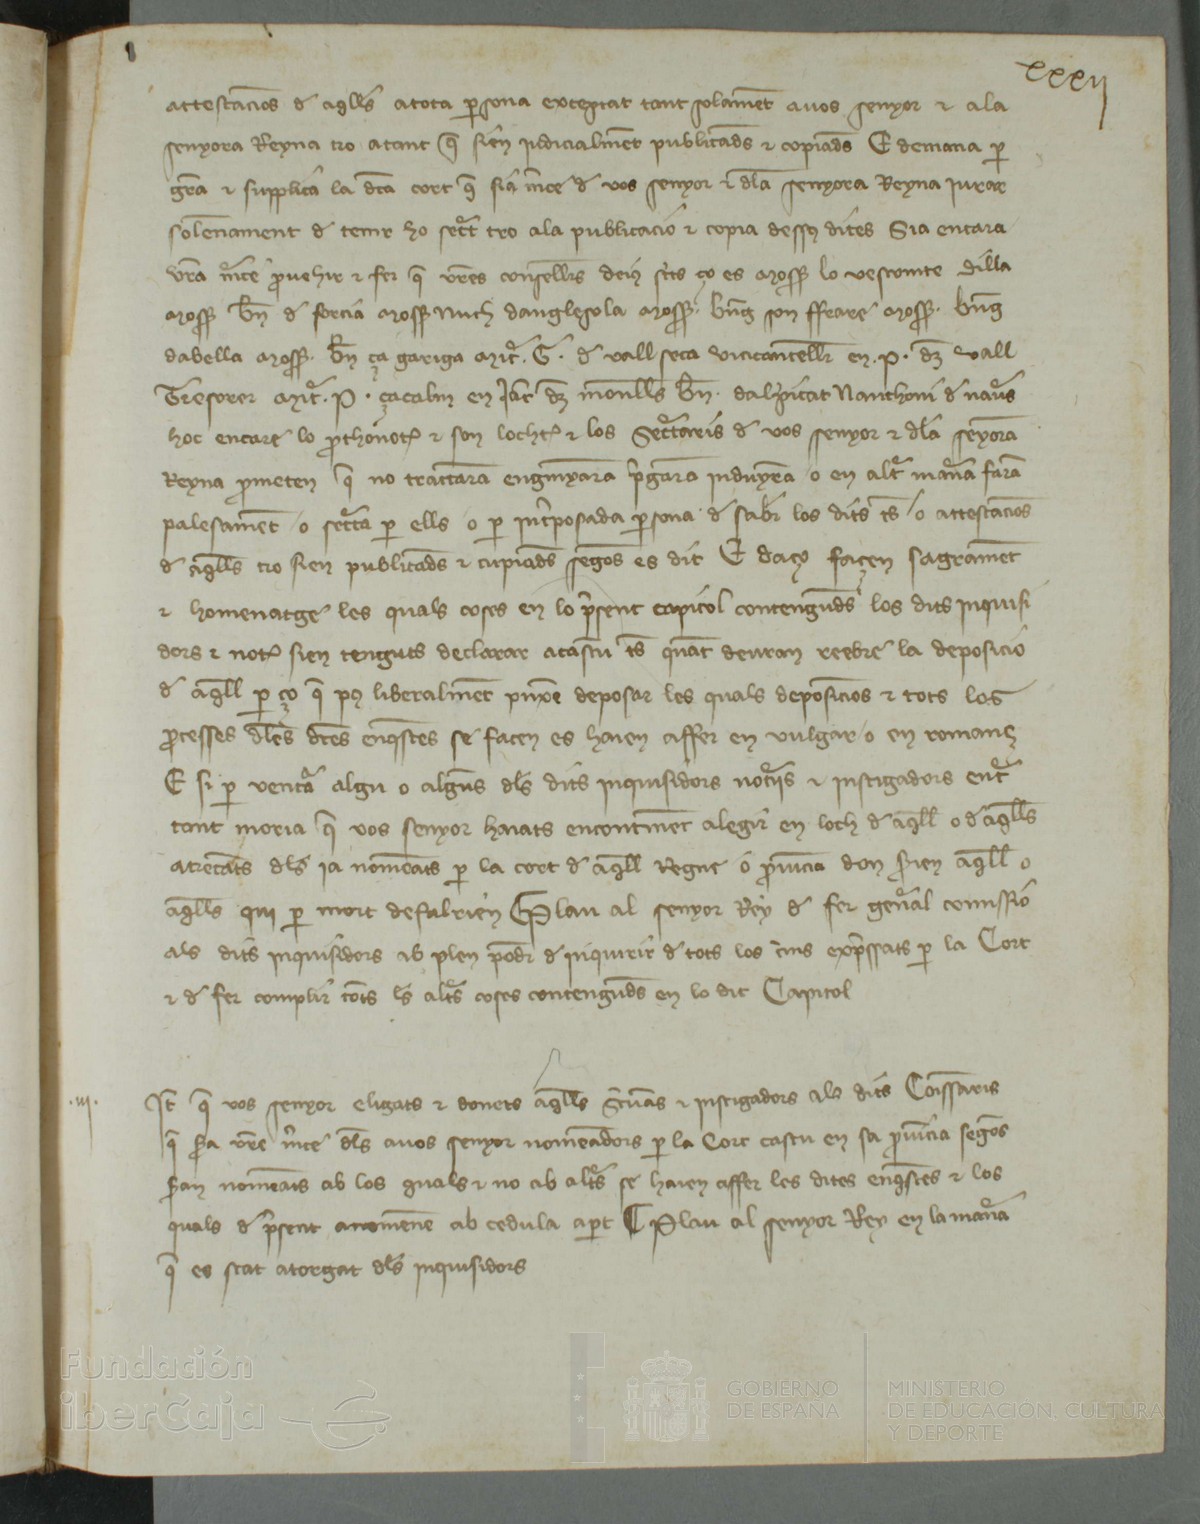 xxxij
attestacios d aqlls atota psona exceptat tant solament avos senyor & ala
senyora Reyna tro atant q sien judicialment publicades & copiades E demana p
gra & supplica la dta cort q sia mce d vos senyor & dla senyora Reyna jurar
solenament d tenir ho secret tro ala publicacio & copia dessus dites Sia encara
vra mce provehir & fer q vres consellers dejus scrits ço es mossen lo vescomte dilla
mossen Bn d forcia mossen Huch danglesola mossen Bng son ffrare mossen Bng
dabella mossen Bn ça gariga micer G. d vall seca vicicanceller en .P. des vall
Tresorer micer .P. çacalm en Jac des monells Bn dalpicat Nanthoni d navars
hoc encare lo prothonot & son lochtinent & los Secretaris d vos senyor & dla senyora
Reyna prometen q no tractara enginyara pregara induyra o en altra manera fara
palesament o secreta p ells o p interposada psona d saber los dits ts o attestacios
d aqlls tro sien publicades & cupiades segons es dit E daço façen sagrament
& homenatge les quals coses en lo present capitol contengudes los dits inquisi
dors & not sien tenguts declarar acascu ts quant deuran reebre la deposicio
d aqll p ço q pus liberalment puxe deposar les quals deposicions & tots los
processes dles dites enqstes se facen es haien affer en vulgar o en romanç
E si p ventura algu o alguns dls dits inquisidors notaris & instigadors entre
tant moria q vos senyor haiats encontinent alegir en loch d aqll o d aqlls
atrecants dls ja nomenats p la cort d aqll Regne o provincia don serien aqll o
aqlls qui p mort defalrien Plau al senyor Rey d fer general comissio
als dits inquisidors ab plen poder d inquirir d tots los crims expressats p la Cort
& d fer complir totes ls altres coses contengudes en lo dit Capitol
.iij. It q vos senyor eligats & donets aqlls scrivans & instigadors als dits Comissaris
q sera vre mce dls avos senyor nomenadors p la Cort cascu en sa provincia segons
seran nomenats ab los quals & no ab altres se haien affer les dites enqstes & los
quals d present anomene ab cedula apart Plau al senyor Rey en la manera
q es stat atorgat dls inquisidors
Fundación
iberCaja
GOBIERNO
DE ESPAÑA
MINISTERIO
DE EDUCACIÓN, CULTURA
Y DEPORTE